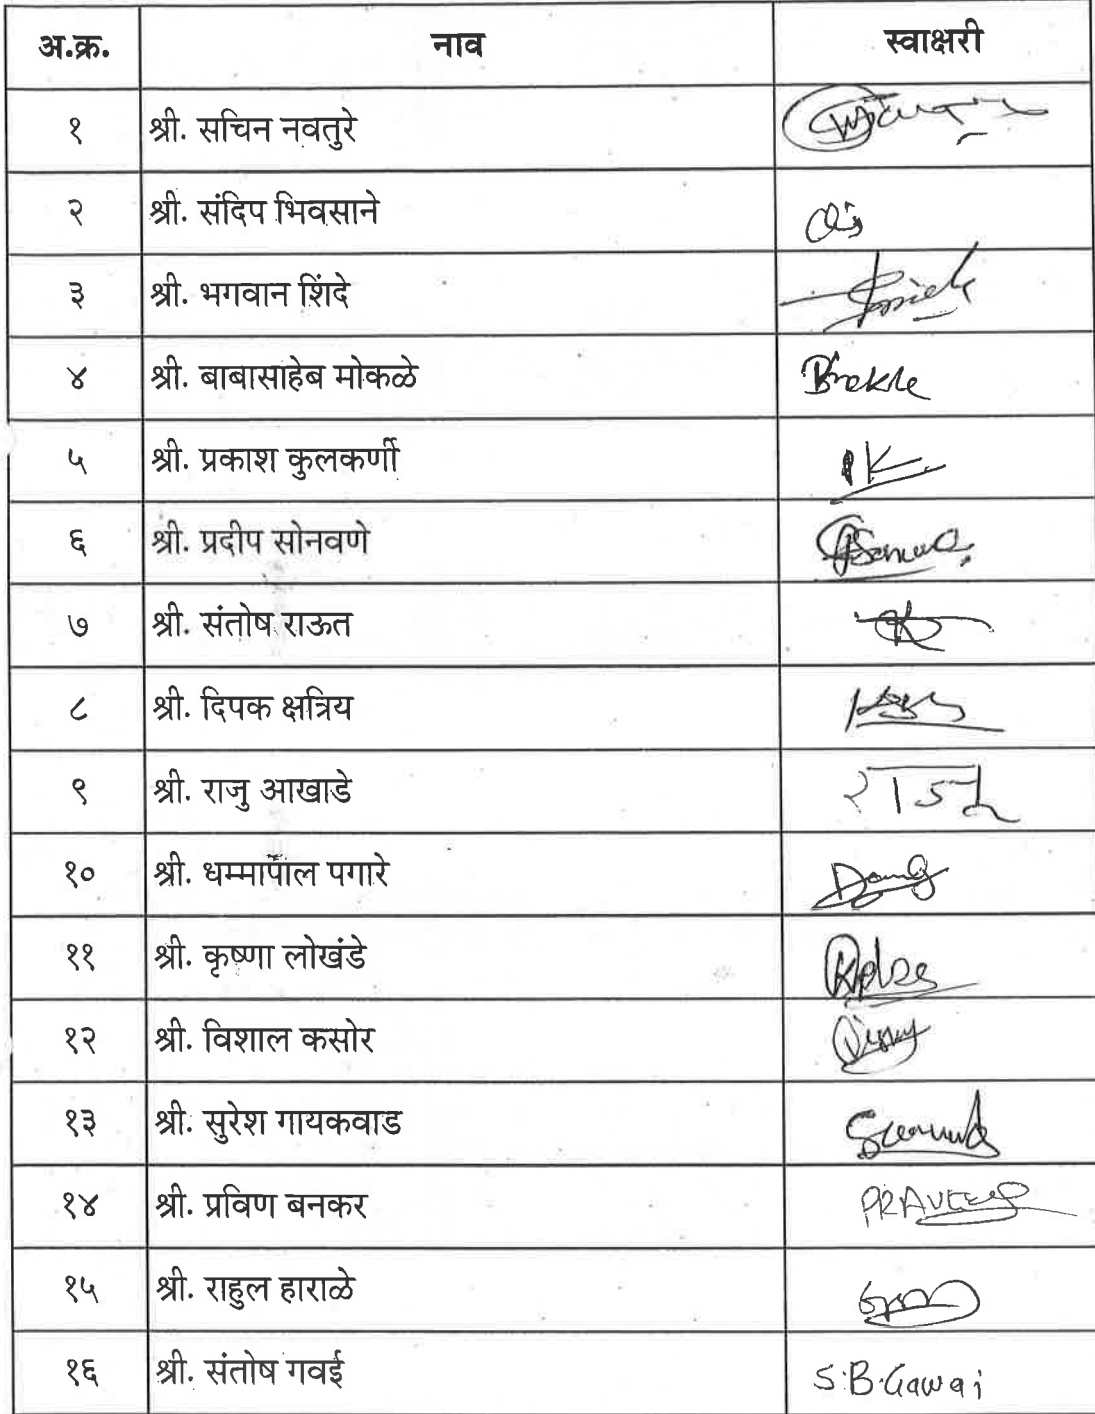 अ.क्र. नाव स्वाक्षरी
१ श्री. सचिन नवतुरे
२ श्री. संदिप भिवसाने
३ श्री. भगवान शिंदे
४ श्री. बाबासाहेब मोकळे
५ श्री. प्रकाश कुलकर्णी PK
६ श्री. प्रदीप सोनवणे
७ श्री. संतोष राऊत
८ श्री. दिपक क्षत्रिय
९ श्री. राजु आखाडे राजू
१० श्री. धम्मापाल पगारे
११ श्री. कृष्णा लोखंडे
१२ श्री. विशाल कसोर
१३ श्री. सुरेश गायकवाड
१४ श्री. प्रविण बनकर PRAVEEN
१५ श्री. राहुल हाराळे
१६ श्री. संतोष गवई S.B.Gawai